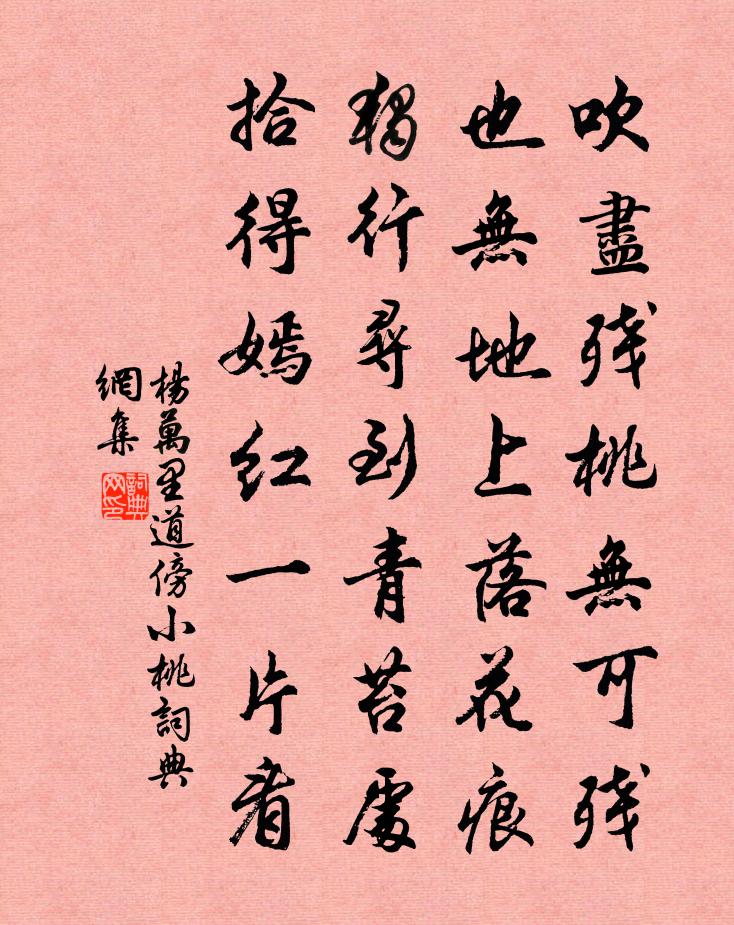 吹盡殘桃無可殘
也無地上落花痕
獨行尋到青苔處
拾得嫣紅一片看
楊萬里道傍小桃詞典
網集
詞典網印